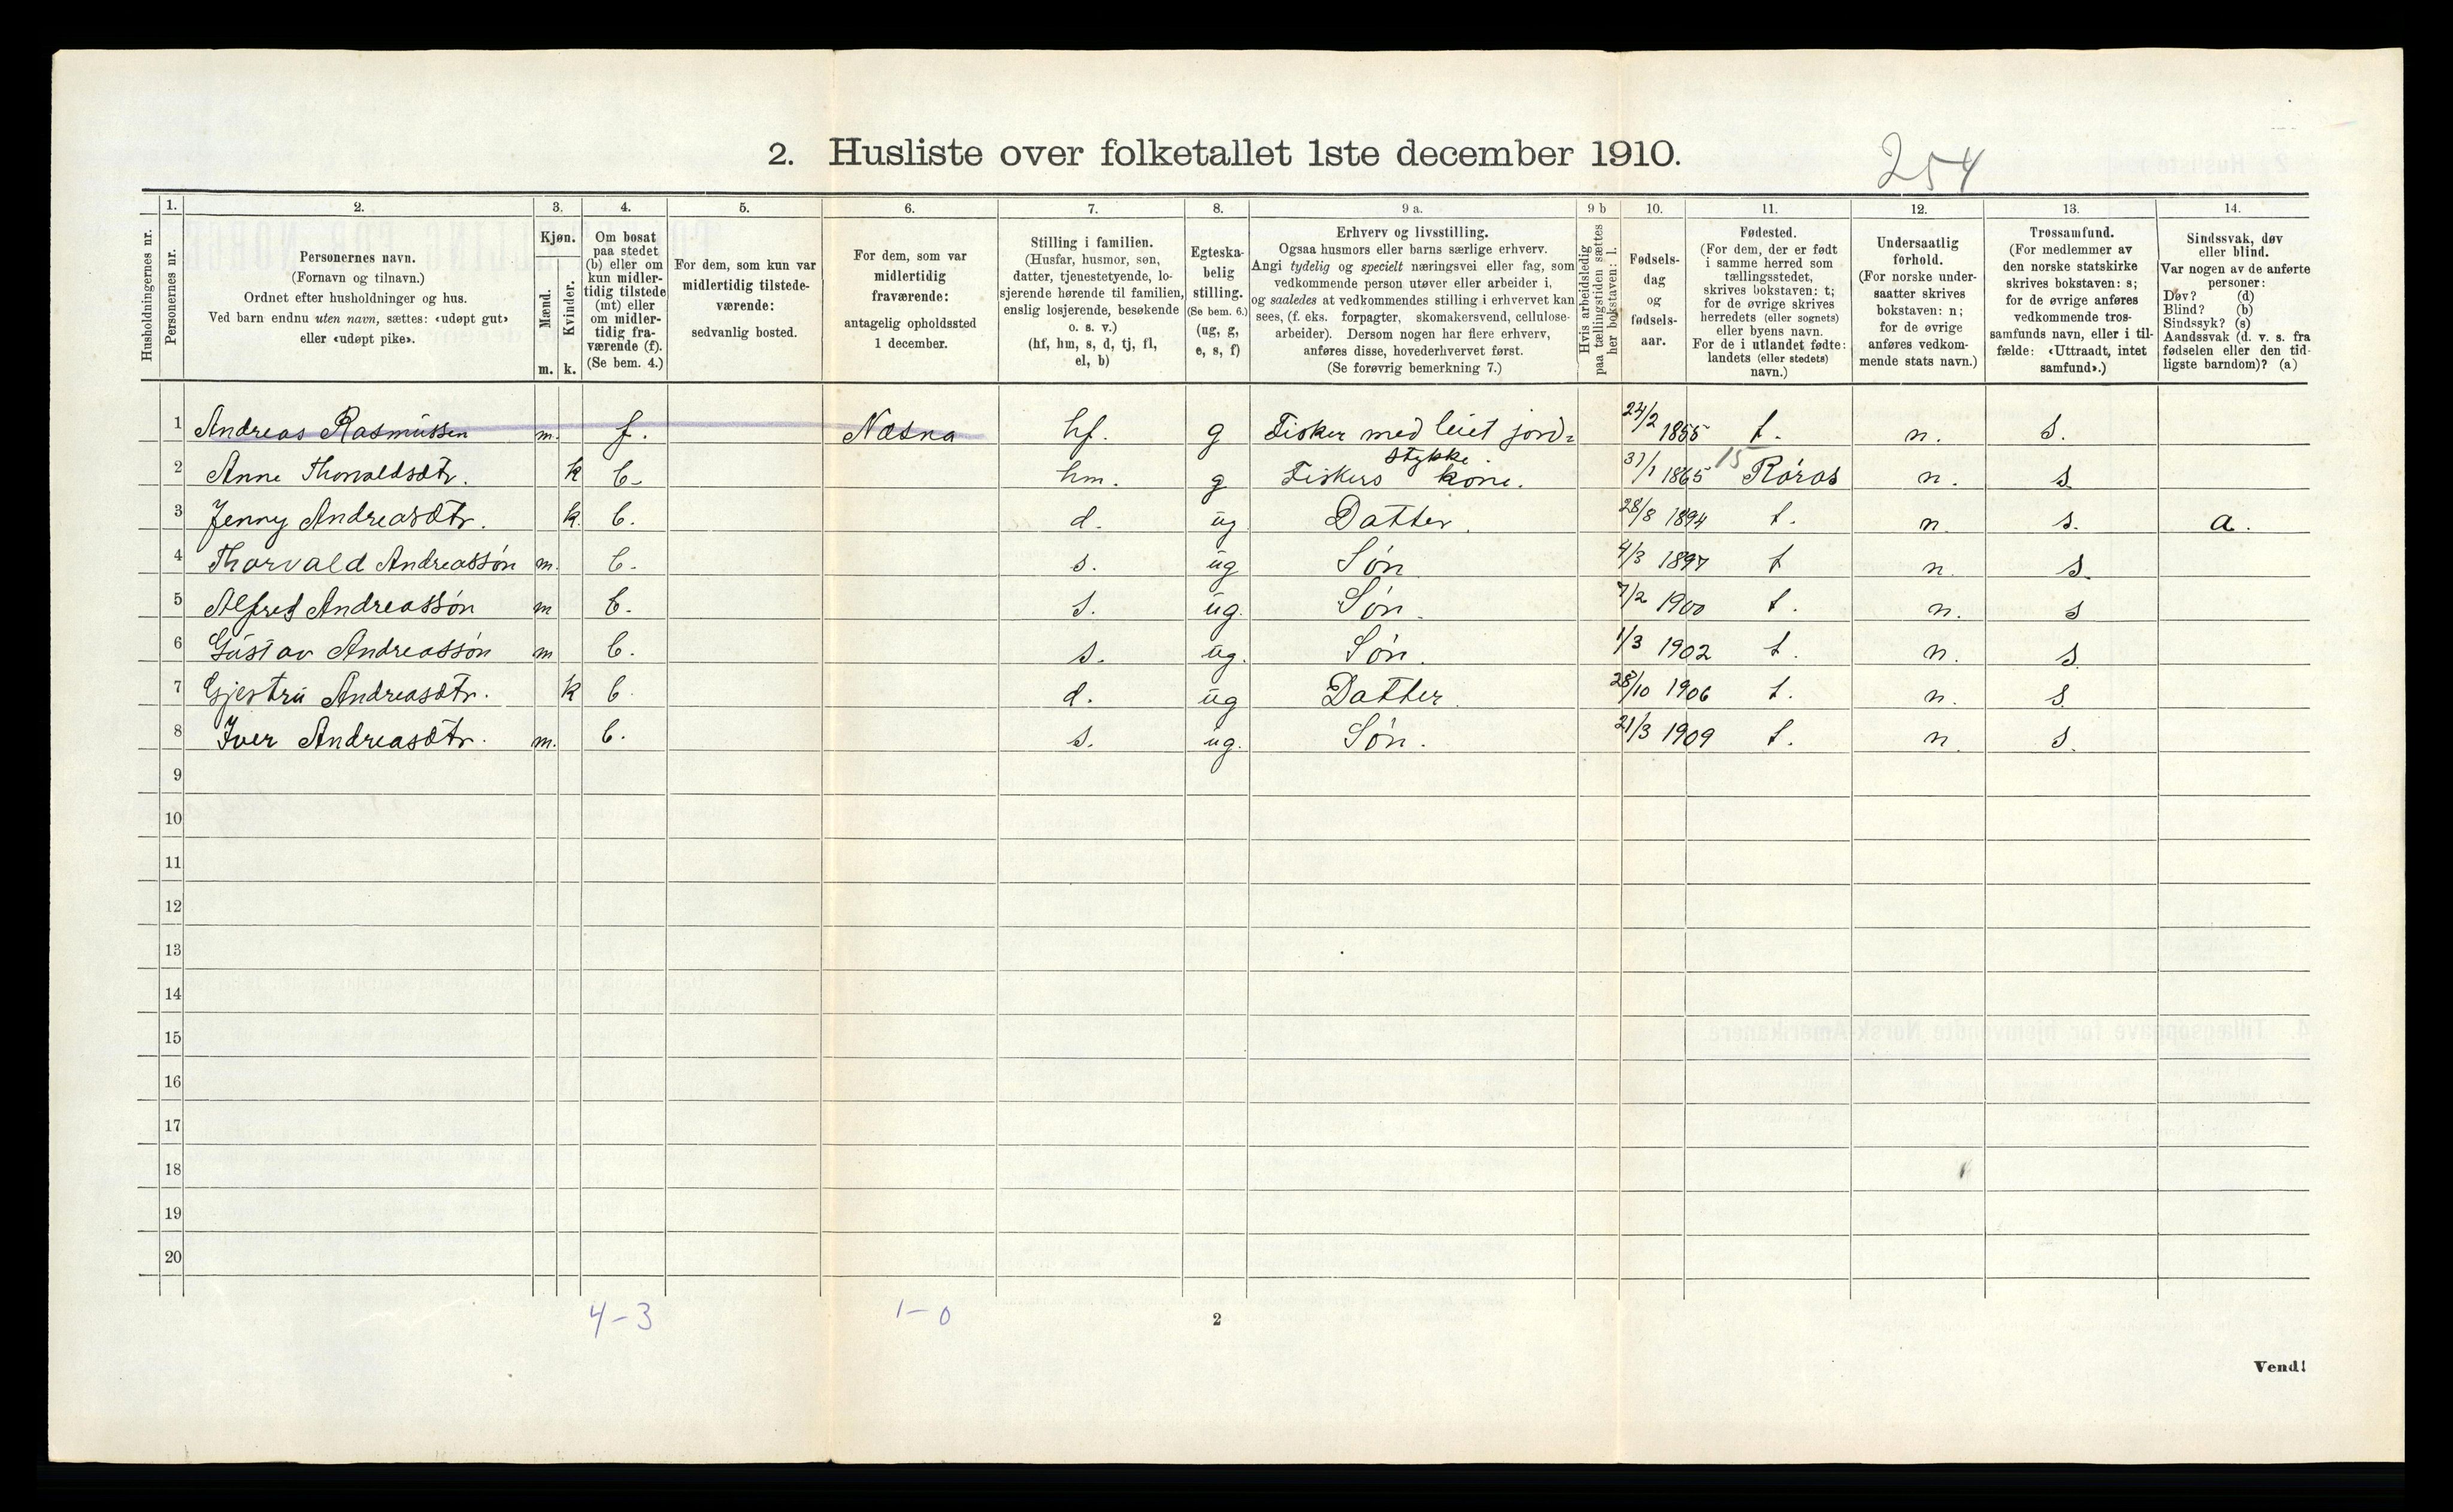 2. Husliste over folketallet 1ste december 1910.
254
1. 2. 3. 4. 5. 6. 7. 8. 9 a. 9 b 10. 11. 12. 13. 14.
Husholdningernes nr.
Personernes nr.
Personernes navn.
(Fornavn og tilnavn.)
Ordnet efter husholdninger og hus.
Ved barn endnu uten navn, sættes: «udøpt gut»
eller «udøpt pike».
Kjøn.
Mænd.
Kvinder.
m. k.
Om bosat
paa stedet
(b) eller om
kun midler-
tidig tilstede
(mt) eller
om midler-
tidig fra-
værende (f).
(Se bem. 4.)
For dem, som kun var
midlertidig tilstede-
værende:
sedvanlig bosted.
For dem, som var
midlertidig
fraværende:
antagelig opholdssted
1 december.
Stilling i familien.
(Husfar, husmor, søn,
datter, tjenestetyende, lo-
sjerende hørende til familien,
enslig losjerende, besøkende
o. s. v.)
(hf, hm, s, d, tj, fl,
el, b)
Egteska-
belig
stilling.
(Se bem. 6.)
(ug, g,
e, s, f)
Erhverv og livsstilling.
Ogsaa husmors eller barns særlige erhverv.
Angi tydelig og specielt næringsvei eller fag, som
vedkommende person utøver eller arbeider i,
og saaledes at vedkommendes stilling i erhvervet kan
sees, (f. eks. forpagter, skomakersvend, cellulose-
arbeider). Dersom nogen har flere erhverv,
anføres disse, hovederhvervet først.
(Se forøvrig bemerkning 7.)
Hvis arbeidsledig
paa tællingstiden sættes
her bokstaven: l.
Fødsels-
dag
og
fødsels-
aar.
Fødested.
(For dem, der er født
i samme herred som
tællingsstedet,
skrives bokstaven: t;
for de øvrige skrives
herredets (eller sognets)
eller byens navn.
For de i utlandet fødte:
landets (eller stedets)
navn.)
Undersaatlig
forhold.
(For norske under-
saatter skrives
bokstaven: n;
for de øvrige
anføres vedkom-
mende stats navn.)
Trossamfund.
(For medlemmer av
den norske statskirke
skrives bokstaven: s;
for de øvrige anføres
vedkommende tros-
samfunds navn, eller i til-
fælde: «Uttraadt, intet
samfund».)
Sindssvak, døv
eller blind.
Var nogen av de anførte
personer:
Døv? (d)
Blind? (b)
Sindssyk? (s)
Aandssvak (d. v. s. fra
fødselen eller den tid-
ligste barndom)? (a)
1 Andreas Rasmussen m. f. Næsna hf. g Fisker med leiet jord= 24/2 1855 t. n. s.
stykke. 15
2 Anne Thorvaldsdtr. k b. hm. g Fiskers kone. 31/1 1865 Röros n. s
3 Jenny Andreasdtr. k. b. d. ug Datter. 28/8 1894 t. n. s. a.
4 Thorvald Andreassön m. b. s. ug Sön 4/3 1897 t n. s.
5 Alfred Andreassön m b. s. ug. Sön. 7/2 1900 t. n. s
6 Gustav Andreassön m b. s. ug. Sön. 1/3 1902 t. n. s
7 Gjestru Andreasdtr. k b. d. ug Datter. 28/10 1906 t. n. s
8 Iver Andreasdtr. m. b. s. ug. Sön. 21/3 1909 t. n. s.
9
10
11
12
13
14
15
16
17
18
19
20
4-3 1-0
2
Vend!